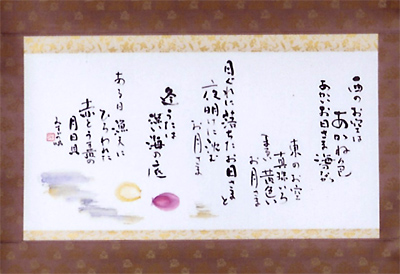 西のお空は
あかね色
あかいお日さま海の
東のお空
真珠いろ
まるい黄色い
お月さま
日ぐれに落ちたお日さまと
夜明けに沈む
お月さま
逢うたは
深い海の底
ある日漁夫に
ひろわれた
赤とうす黄の
月日貝